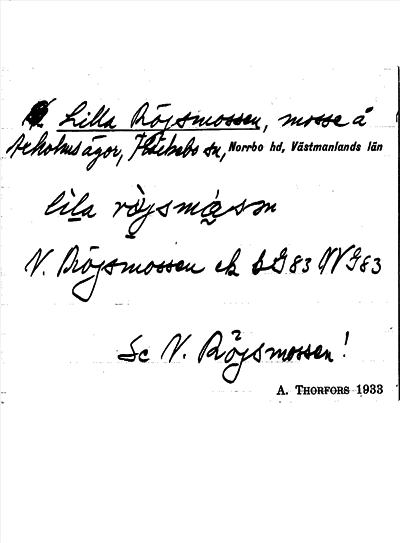 Lilla Röjsmossen, mosse å
ägor, Skultuna sn, Norrbo hd, Västmanlands län
lila röjsmåsn
V. Röjsmossen ek bG83 NVG83
Se V. Röjsmossen!
A. Thorfors 1933